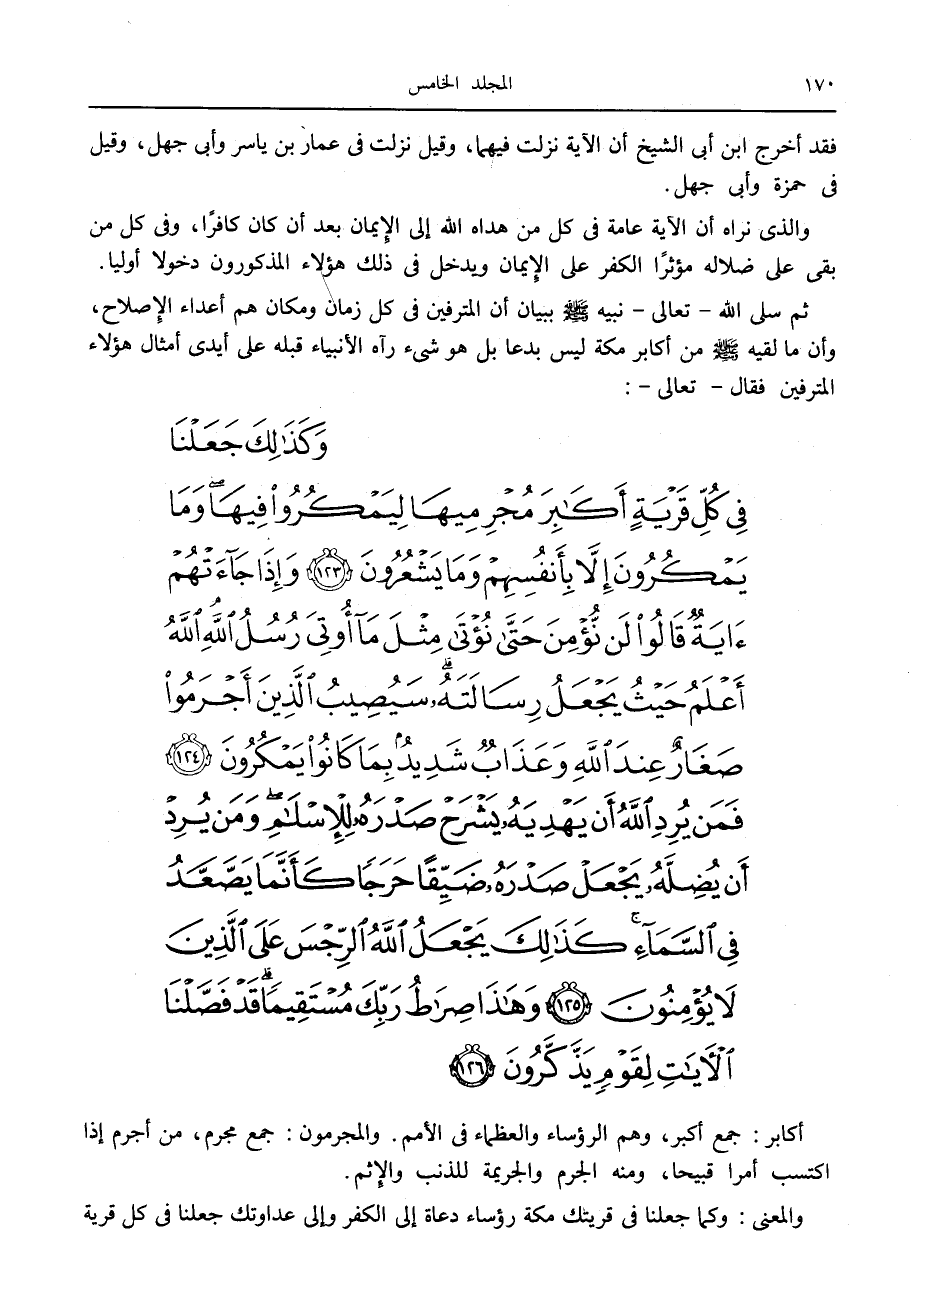 ١٧٠ المجلد الخامس
فقد أخرج ابن أبى الشيخ أن الآية نزلت فيهما، وقيل نزلت فى عمار بن ياسر وأبى جهل، وقيل
فى حمزة وأبى جهل.
والذى نراه أن الآية عامة فى كل من هداه الله إلى الإيمان بعد أن كان كافرًا، وفى كل من
بقى على ضلاله مؤثرًا الكفر على الإيمان ويدخل فى ذلك هؤلاء المذكورون دخولا أوليا.
ثم سلى الله - تعالى - نبيه ﷺ ببيان أن المترفين فى كل زمان ومكان هم أعداء الإصلاح،
وأن ما لقيه ﷺ من أكابر مكة ليس بدعا بل هو شىء رآه الأنبياء قبله على أيدى أمثال هؤلاء
المترفين فقال - تعالى - :
وَكَذَٰلِكَ جَعَلْنَا
فِى كُلِّ قَرْيَةٍ أَكَٰبِرَ مُجْرِمِيهَا لِيَمْكُرُوا۟ فِيهَا ۖ وَمَا
يَمْكُرُونَ إِلَّا بِأَنفُسِهِمْ وَمَا يَشْعُرُونَ ﴿١٢٣﴾ وَإِذَا جَآءَتْهُمْ
ءَايَةٌ قَالُوا۟ لَن نُّؤْمِنَ حَتَّىٰ نُؤْتَىٰ مِثْلَ مَآ أُوتِىَ رُسُلُ ٱللَّهِ ۘ ٱللَّهُ
أَعْلَمُ حَيْثُ يَجْعَلُ رِسَالَتَهُۥ ۗ سَيُصِيبُ ٱلَّذِينَ أَجْرَمُوا۟
صَغَارٌ عِندَ ٱللَّهِ وَعَذَابٌ شَدِيدٌۢ بِمَا كَانُوا۟ يَمْكُرُونَ ﴿١٢٤﴾
فَمَن يُرِدِ ٱللَّهُ أَن يَهْدِيَهُۥ يَشْرَحْ صَدْرَهُۥ لِلْإِسْلَٰمِ ۖ وَمَن يُرِدْ
أَن يُضِلَّهُۥ يَجْعَلْ صَدْرَهُۥ ضَيِّقًا حَرَجًا كَأَنَّمَا يَصَّعَّدُ
فِى ٱلسَّمَآءِ ۚ كَذَٰلِكَ يَجْعَلُ ٱللَّهُ ٱلرِّجْسَ عَلَى ٱلَّذِينَ
لَا يُؤْمِنُونَ ﴿١٢٥﴾ وَهَٰذَا صِرَٰطُ رَبِّكَ مُسْتَقِيمًا ۗ قَدْ فَصَّلْنَا
ٱلْـَٔايَٰتِ لِقَوْمٍ يَذَّكَّرُونَ ﴿١٢٦﴾
أكابر : جمع أكبر، وهم الرؤساء والعظماء فى الأمم. والمجرمون : جمع مجرم، من أجرم إذا
اكتسب أمرا قبيحا، ومنه الجرم والجريمة للذنب والإثم.
والمعنى : وكما جعلنا فى قريتك مكة رؤساء دعاة إلى الكفر وإلى عداوتك جعلنا فى كل قرية